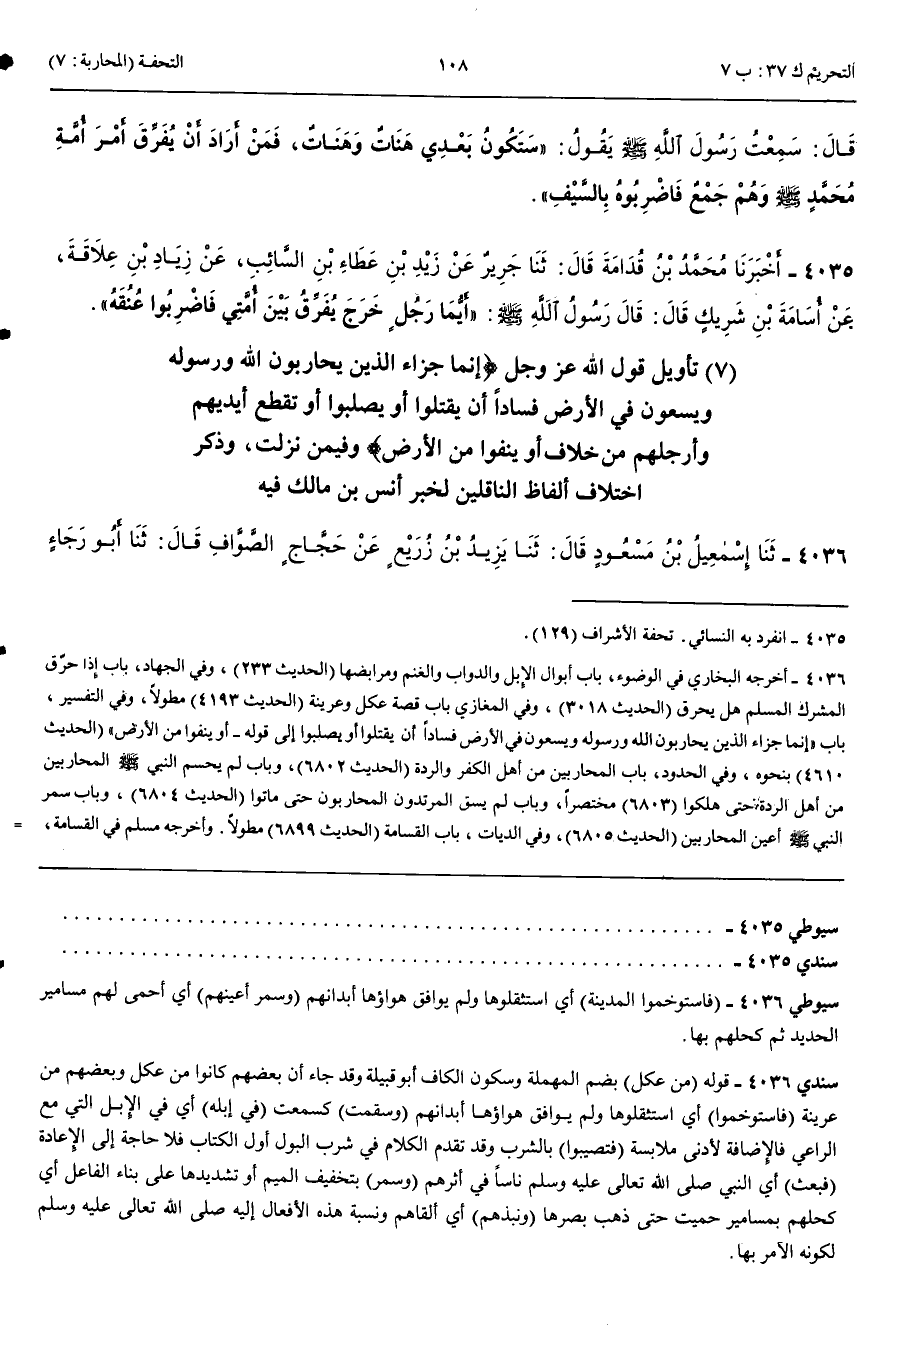 التحريم ك ٣٧: ب ٧
١٠٨
التحفة (المحاربة: ٧)
قَالَ: سَمِعْتُ رَسُولَ ٱللَّهِ ﷺ يَقُولُ: «سَتَكُونُ بَعْدِي هَنَاتٌ وَهَنَاتٌ، فَمَنْ أَرَادَ أَنْ يُفَرِّقَ أَمْرَ أُمَّةِ
مُحَمَّدٍ ﷺ وَهُمْ جَمْعٌ فَاضْرِبُوهُ بِالسَّيْفِ».
٤٠٣٥ ـ أَخْبَرَنَا مُحَمَّدُ بْنُ قُدَامَةَ قَالَ: ثَنَا جَرِيرٌ عَنْ زَيْدِ بْنِ عَطَاءِ بْنِ السَّائِبِ، عَنْ زِيَادِ بْنِ عِلَاقَةَ،
عَنْ أُسَامَةَ بْنِ شَرِيكٍ قَالَ: قَالَ رَسُولُ ٱللَّهِ ﷺ: «أَيُّمَا رَجُلٍ خَرَجَ يُفَرِّقُ بَيْنَ أُمَّتِي فَاضْرِبُوا عُنُقَهُ».
(٧) تأويل قول الله عز وجل ﴿إنما جزاء الذين يحاربون الله ورسوله
ويسعون في الأرض فساداً أن يقتلوا أو يصلبوا أو تقطع أيديهم
وأرجلهم من خلاف أو ينفوا من الأرض﴾ وفيمن نزلت، وذكر
اختلاف ألفاظ الناقلين لخبر أنس بن مالك فيه
٤٠٣٦ ـ ثَنَا إِسْمٰعِيلُ بْنُ مَسْعُودٍ قَالَ: ثَنَا يَزِيدُ بْنُ زُرَيْعٍ عَنْ حَجَّاجٍ الصَّوَّافِ قَالَ: ثَنَا أَبُو رَجَاءٍ
٤٠٣٥ ـ انفرد به النسائي. تحفة الأشراف (١٢٩).
٤٠٣٦ ـ أخرجه البخاري في الوضوء، باب أبوال الإبل والدواب والغنم ومرابضها (الحديث ٢٣٣) ، وفي الجهاد، باب إذا حرّق
المشرك المسلم هل يحرق (الحديث ٣٠١٨) ، وفي المغازي باب قصة عكل وعرينة (الحديث ٤١٩٣) مطولاً، وفي التفسير ،
باب «إنما جزاء الذين يحاربون الله ورسوله ويسعون في الأرض فساداً أن يقتلوا أو يصلبوا إلى قوله ـ أو ينفوا من الأرض» (الحديث
٤٦١٠) بنحوه ، وفي الحدود، باب المحاربين من أهل الكفر والردة (الحديث ٦٨٠٢)، وباب لم يحسم النبي ﷺ المحاربين
من أهل الردة حتى هلكوا (٦٨٠٣) مختصراً، وباب لم يسق المرتدون المحاربون حتى ماتوا (الحديث ٦٨٠٤) ، وباب سمر
النبي ﷺ أعين المحاربين (الحديث ٦٨٠٥)، وفي الديات ، باب القسامة (الحديث ٦٨٩٩) مطولاً. وأخرجه مسلم في القسامة، =
سيوطي ٤٠٣٥ ـ . . . . . . . . . . . . . . . . . . . . . . . . . . . . . . . . . . . . . . . .
سندي ٤٠٣٥ ـ . . . . . . . . . . . . . . . . . . . . . . . . . . . . . . . . . . . . . . . .
سيوطي ٤٠٣٦ ـ (فاستوخموا المدينة) أي استثقلوها ولم يوافق هواؤها أبدانهم (وسمر أعينهم) أي أحمى لهم مسامير
الحديد ثم كحلهم بها.
سندي ٤٠٣٦ ـ قوله (من عكل) بضم المهملة وسكون الكاف أبو قبيلة وقد جاء أن بعضهم كانوا من عكل وبعضهم من
عرينة (فاستوخموا) أي استثقلوها ولم يوافق هواؤها أبدانهم (وسقمت) كسمعت (في إبله) أي في الإبل التي مع
الراعي فالإضافة لأدنى ملابسة (فتصيبوا) بالشرب وقد تقدم الكلام في شرب البول أول الكتاب فلا حاجة إلى الإعادة
(فبعث) أي النبي صلى الله تعالى عليه وسلم ناساً في أثرهم (وسمر) بتخفيف الميم أو تشديدها على بناء الفاعل أي
كحلهم بمسامير حميت حتى ذهب بصرها (ونبذهم) أي ألقاهم ونسبة هذه الأفعال إليه صلى الله تعالى عليه وسلم
لكونه الآمر بها.